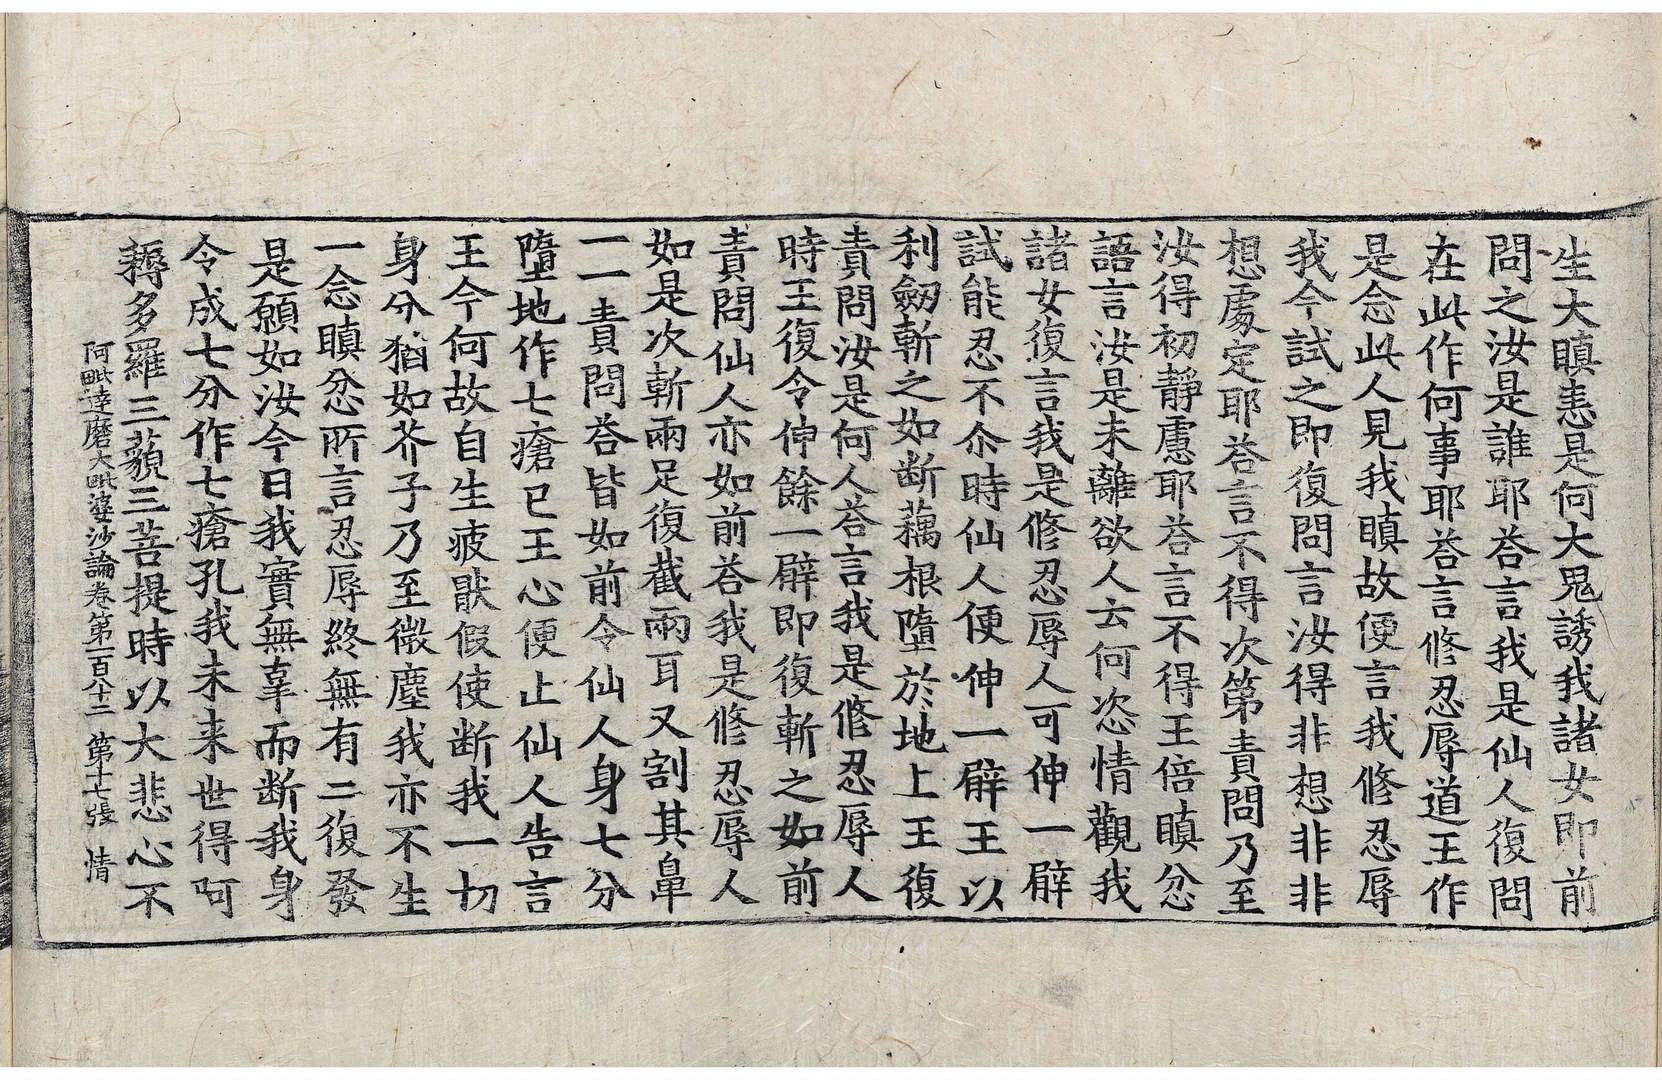 生大瞋恚是何大鬼誘我諸女即前
問之汝是誰耶荅言我是仙人復問
在此作何事耶荅言修忍辱道王作
是念此人見我瞋故便言我修忍辱
我今試之即復問言汝得非想非非
想處定耶荅言不得次第責問乃至
汝得初靜慮耶荅言不得王倍瞋忿
語言汝是未離欲人云何恣情觀我
諸女復言我是修忍辱人可伸一臂
試能忍不尒時仙人便伸一臂王以
利劒斬之如断藕根墮於地上王復
責問汝是何人荅言我是修忍辱人
時王復令伸餘一臂即復斬之如前
責問仙人亦如前荅我是修忍辱人
如是次斬兩足復截兩耳又割其鼻
一一責問荅皆如前令仙人身七分
墮地作七瘡已王心便止仙人告言
王今何故自生疲猒假使断我一切
身分猶如芥子乃至微塵我亦不生
一念瞋忿所言忍辱終無有二復發
是願如汝今日我實無辜而断我身
令成七分作七瘡孔我未来世得阿
耨多羅三藐三菩提時以大悲心不
阿毗達磨大毗婆沙論卷第一百八十二 第十七張 情